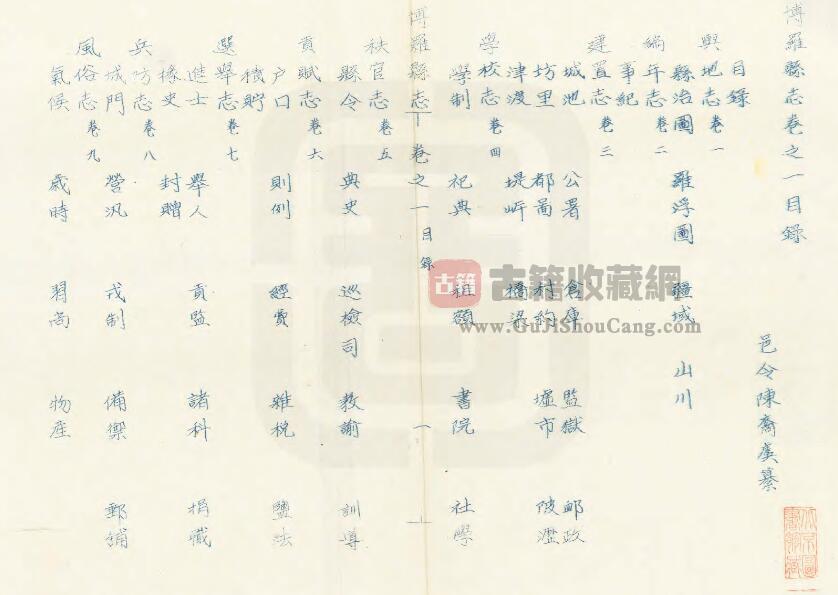 博羅縣志卷之一目録
邑令陳裔虞纂
目録
輿地志 卷一
縣治圖 羅浮圖 疆域 山川
編年志 卷二
事紀
建置志 卷三
城池 公署 倉庫 監獄 郵政
坊里 都啚 村約 墟市 陂瀝
津渡 堤岍 橋梁
學校志 卷四
學制 祀典 租額 書院 社學
博羅縣志 卷之一 目録 一
秩官志 卷五
縣令 典史 巡檢司 教諭 訓導
貢賦志 卷六
户口 則例 經費 雜稅 鹽法
積貯
選舉志 卷七
進士 舉人 貢監 諸科 捐職
掾史 封贈
兵防志 卷八
城門 營汛 戎制 備禦 郵舖
風俗志 卷九
氣候 歲時 習尚 物產
古籍 古籍收藏網
www.GuJiShouCang.com